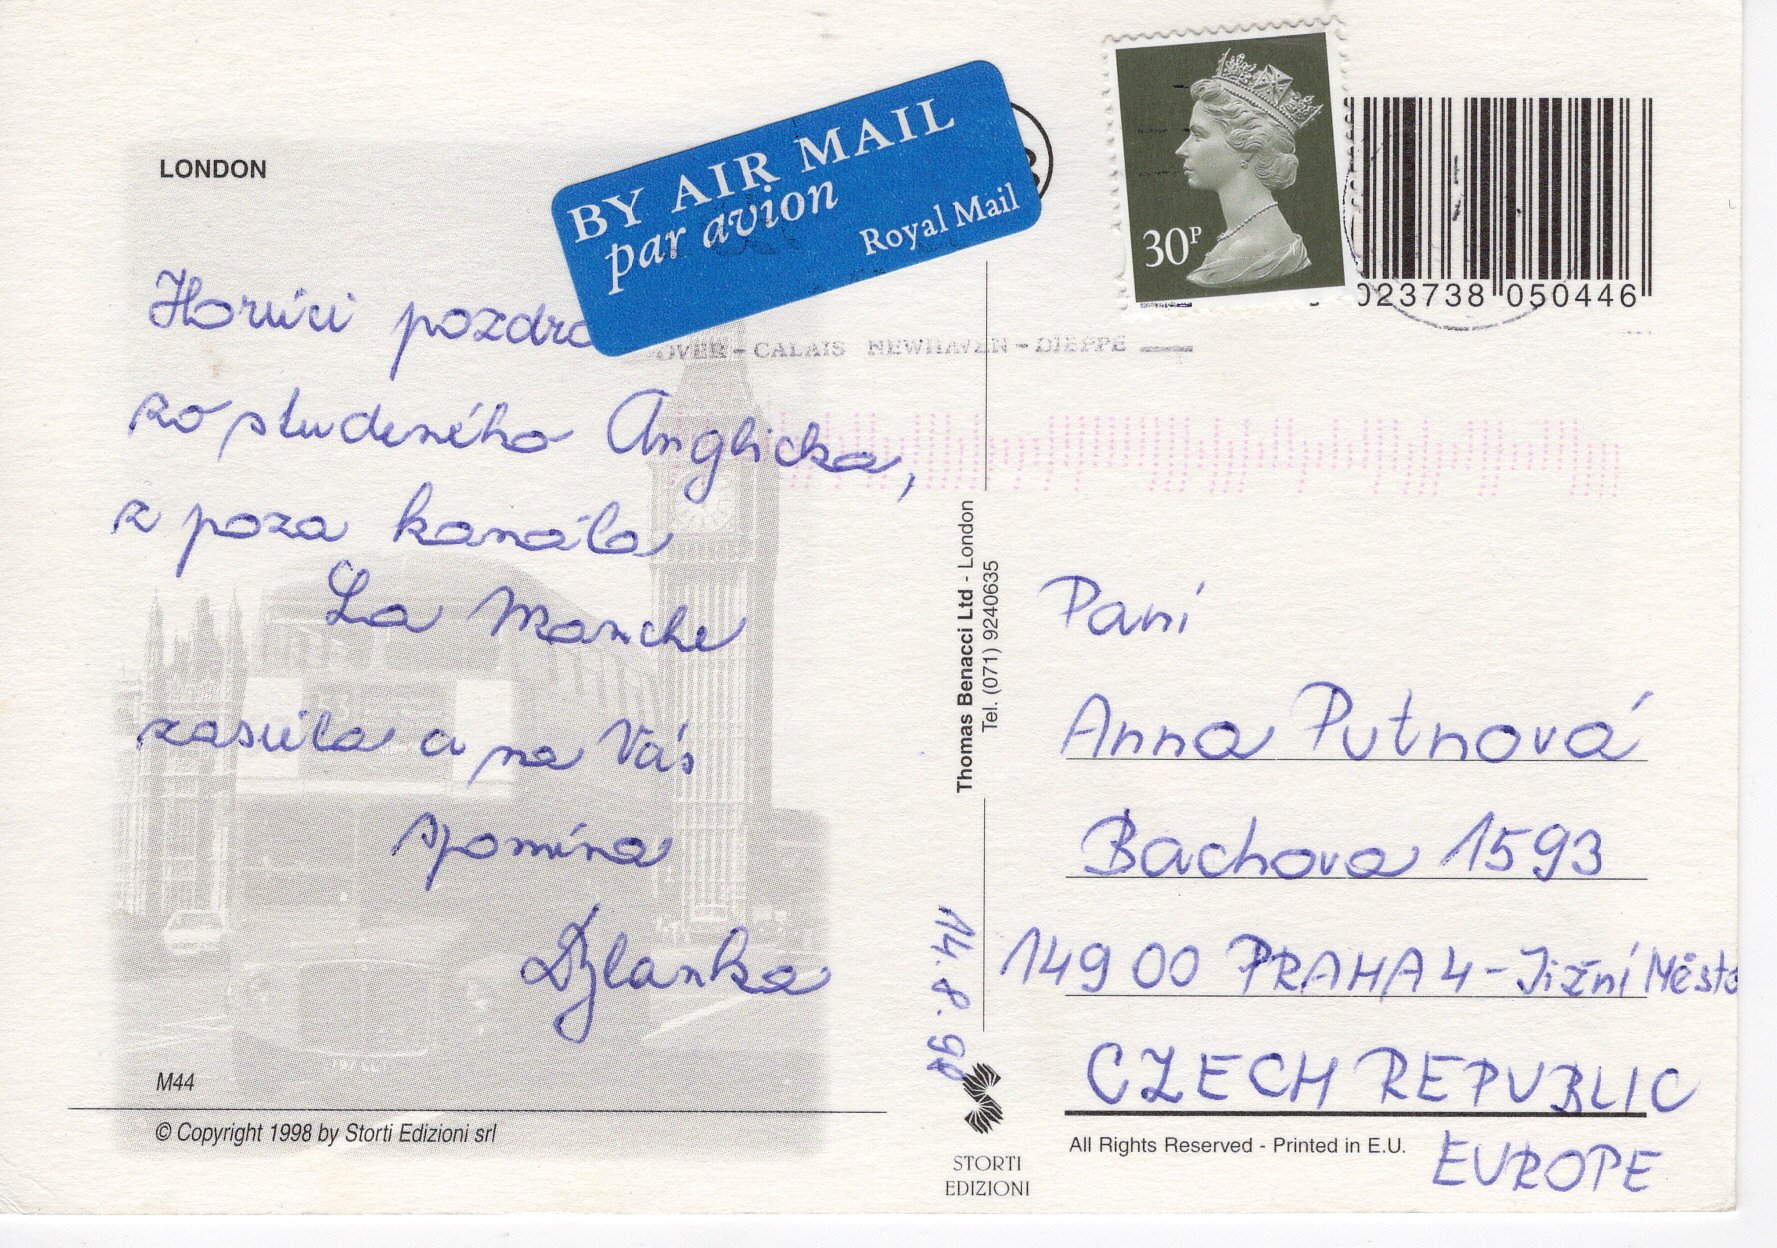 LONDON
BY AIR MAIL
par avion
Royal Mail
30P
023738 050446
OVER - CALAIS NEWHAVEN - DIEPPE
Horúci
zo studeného Anglicka,
z poza kanála
La Manche
zasiela a na Vás
spomína
14. 8. 98
M44
© Copyright 1998 by Storti Edizioni srl
Thomas Benacci Ltd - London
Tel. (071) 9240635
STORTI
EDIZIONI
Paní
Anna Putnová
Bachova 1593
149 00 PRAHA 4 - Jižní Město
CZECH REPUBLIC
EUROPE
All Rights Reserved - Printed in E.U.